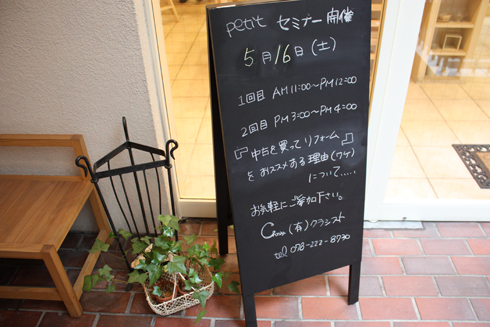 petit セミナー開催
5月16日(土)
1回目 AM11:00〜PM12:00
2回目 PM3:00〜PM4:00
『中古を買ってリフォーム』
をおススメする理由(ワケ)
について.....
お気軽にご参加下さい。
(有)クラシスト
tel 078-222-8730